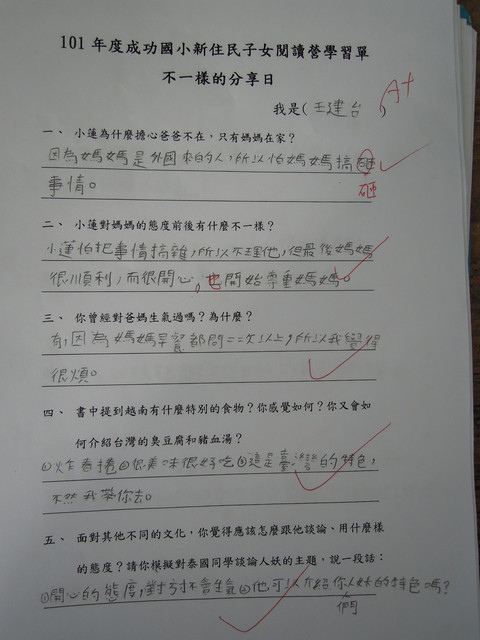 101 年度成功國小新住民子女閱讀營學習單
不一樣的分享日
我是(王建台) A+
一、 小蓮為什麼擔心爸爸不在，只有媽媽在家？
因為媽媽是外國來的人,所以怕媽媽搞砸
事情。 砸
二、 小蓮對媽媽的態度前後有什麼不一樣？
小蓮怕把事情搞雜,所以不理他,但最後媽媽
很順利,而很開心,也開始尊重媽媽。
三、 你曾經對爸媽生氣過嗎？為什麼？
有,因為媽媽早餐都問一二次以上,所以我覺得
很煩。
四、 書中提到越南有什麼特別的食物？你感覺如何？你又會如
何介紹台灣的臭豆腐和豬血湯？
①炸春捲②很美味很好吃③這是臺灣的特色,
不然我帶你去。
五、 面對其他不同的文化，你覺得應該怎麼跟他談論、用什麼樣
的態度？請你模擬對泰國同學談論人妖的主題，說一段話：
①開心的態度,對方不會生氣②他可以介紹你人妖的特色嗎?
們